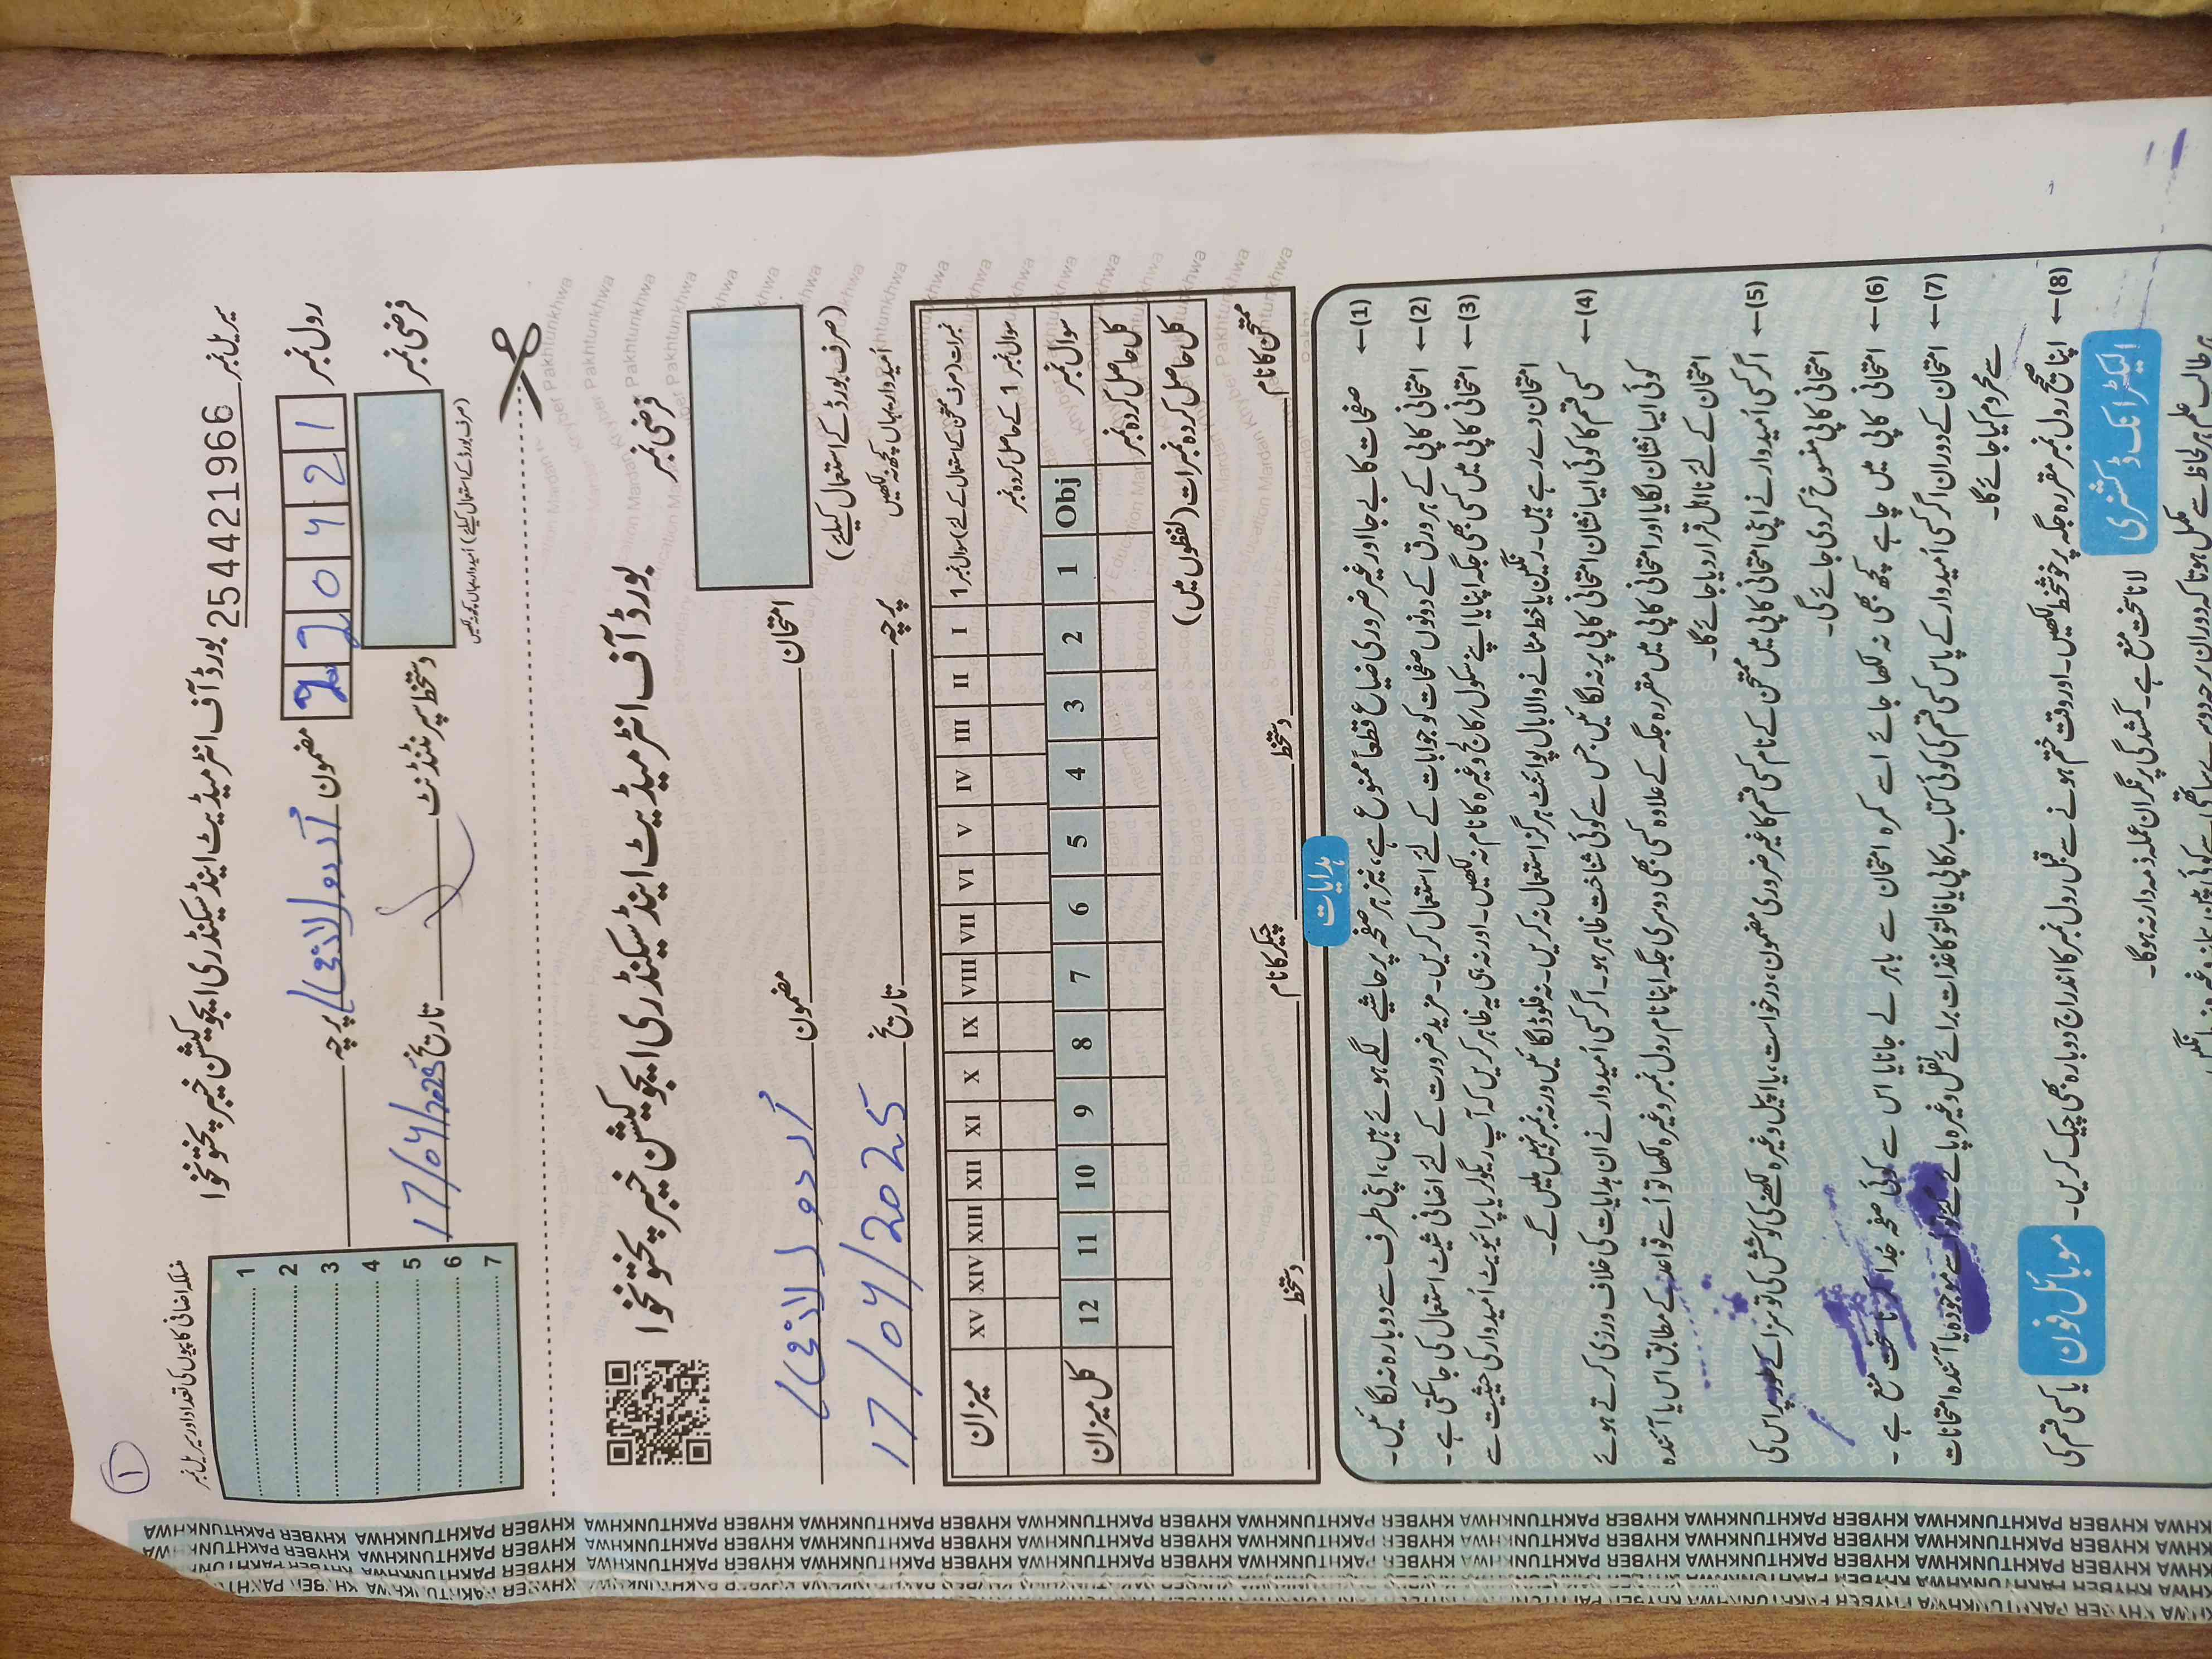 ①
منسلکہ اضافی کاپیوں کی تعداد اور سیریل نمبر
1
2
3
4
5
6
7
سیریل نمبر 254421966
بورڈ آف انٹرمیڈیٹ اینڈ سیکنڈری ایجوکیشن خیبر پختونخوا
رول نمبر
مضمون اُردو (لازمی) پرچہ
فرضی نمبر
دستخط سپرنٹنڈنٹ تاریخ 17/04/2025
(صرف بورڈ کے استعمال کیلئے) اُمیدوار یہاں کچھ نہ لکھیں
بورڈ آف انٹرمیڈیٹ اینڈ سیکنڈری ایجوکیشن خیبر پختونخوا
فرضی نمبر
امتحان مضمون اُردو (لازمی)
(صرف بورڈ کے استعمال کیلئے)
اُمیدوار یہاں کچھ نہ لکھیں
پرچہ تاریخ 17/04/2025
نمبرات (صرف ممتحن کے استعمال کے لئے) سوال نمبر 1 I II III IV V VI VII VIII IX X XI XII XIII XIV XV میزان
سوال نمبر 1 کے حاصل کردہ نمبر
سوال نمبر Obj 1 2 3 4 5 6 7 8 9 10 11 12 کل میزان
کل حاصل کردہ نمبر
کل حاصل کردہ نمبرات (لفظوں میں)
ممتحن کا نام دستخط چیکر کا نام دستخط
ہدایات
(1)← صفحات کا بے جا اور غیر ضروری ضیاع قطعاً ممنوع ہے، نیز ہر صفحہ پر حاشیے لگے ہوئے ہیں، اپنی طرف سے دوبارہ نہ لگائیں۔
(2)← امتحانی کاپی کے ہر ورق کے دونوں صفحات کو جوابات کے لئے استعمال کریں۔ مزید ضرورت کے لئے اضافی شیٹ استعمال کی جاسکتی ہے۔
(3)← امتحانی کاپی میں کسی بھی جگہ اپنا یا اپنے سکول/کالج وغیرہ کا نام نہ لکھیں۔ اور نہ ہی یہ ظاہر کریں کہ آپ ریگولر یا پرائیویٹ اُمیدوار کی حیثیت سے
امتحان دے رہے ہیں۔ رنگین یا خط مٹانے والا بال پوائنٹ ہرگز استعمال نہ کریں۔ نہ فلوڈ لگائیں ورنہ نمبر نہیں ملیں گے۔
(4)← کسی قسم کا کوئی ایسا نشان امتحانی کاپی پر نہ لگائیں جس سے کوئی شناخت ظاہر ہو۔ اگر کسی اُمیدوار نے ان ہدایات کی خلاف ورزی کرتے ہوئے
کوئی ایسا نشان لگایا اور امتحانی کاپی میں مقررہ جگہ کے علاوہ کسی بھی دوسری جگہ اپنا نام رول نمبر وغیرہ لکھا تو اُسے قواعد کے مطابق اس یا آئندہ
امتحان کے لئے نااہل قرار دیا جائے گا۔
(5)← اگر کسی اُمیدوار نے اپنی امتحانی کاپی میں ممتحن کے نام کسی قسم کا غیر ضروری مضمون، درخواست، یا اپیل وغیرہ لکھنے کی کوشش کی تو سزا کے طور پر اس کی
امتحانی کاپی منسوخ کر دی جائے گی۔
(6)← امتحانی کاپی میں چاہے کچھ بھی نہ لکھا جائے اسے کمرہ امتحان سے باہر لے جانا یا اس سے کوئی صفحہ جدا کرنا سخت منع ہے۔
(7)← امتحان کے دوران اگر کسی اُمیدوار کے پاس کسی قسم کی کوئی کتاب، کاپی یا فالتو کاغذات برائے نقل وغیرہ پائے گئے تو اسے موجودہ یا آئندہ امتحانات
سے محروم کیا جائے گا۔
(8)← اپنا صحیح رول نمبر مقررہ جگہ پر خوشخط لکھیں۔ اور وقت ختم ہونے سے قبل رول نمبر کا اندراج دوبارہ بھی چیک کریں۔
موبائل فون یا کسی قسم کی الیکٹرانک ڈکشنری لانا سخت منع ہے۔ گمشدگی پر نگران عملہ ذمہ دار نہ ہوگا۔
KHYBER PAKHTUNKHWA KHYBER PAKHTUNKHWA KHYBER PAKHTUNKHWA